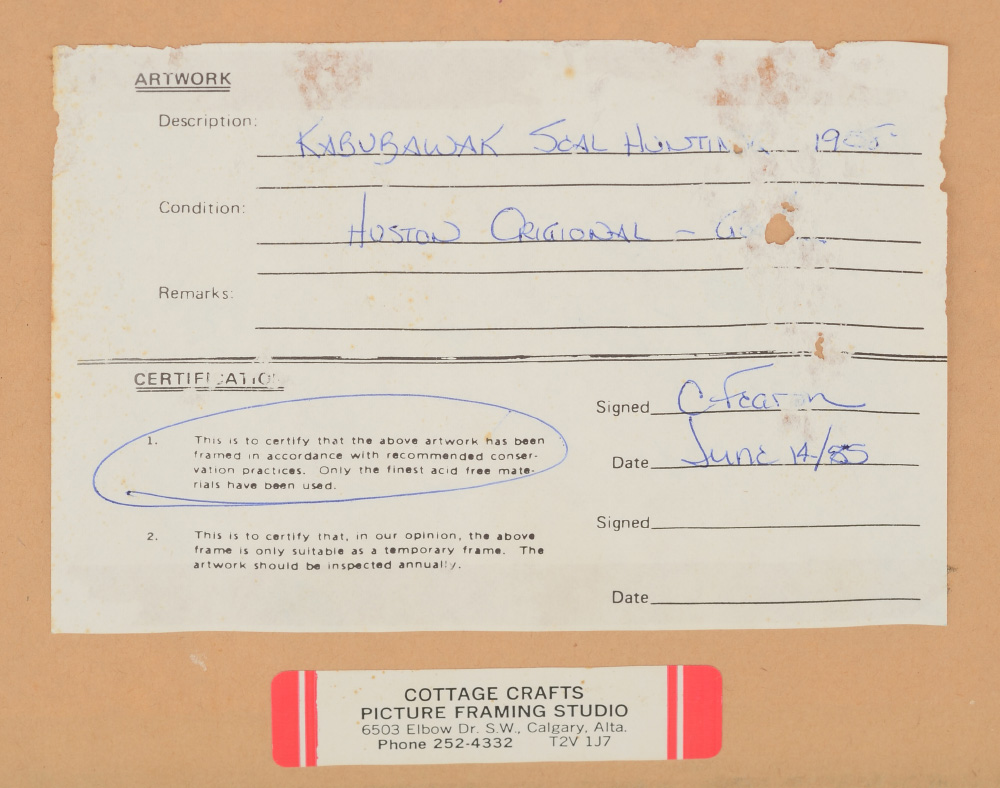 ARTWORK
Description: KABUBAWAK SEAL HUNTIN
Condition: HUSTON ORIGIONAL -
Remarks:
CERTIFICATION
Signed C. Fearon
1. This is to certify that the above artwork has been
framed in accordance with recommended conser-
vation practices. Only the finest acid free mate-
rials have been used.
Date June 14/85
Signed
2. This is to certify that, in our opinion, the above
frame is only suitable as a temporary frame. The
artwork should be inspected annually.
Date
COTTAGE CRAFTS
PICTURE FRAMING STUDIO
6503 Elbow Dr. S.W., Calgary, Alta.
Phone 252-4332 T2V 1J7